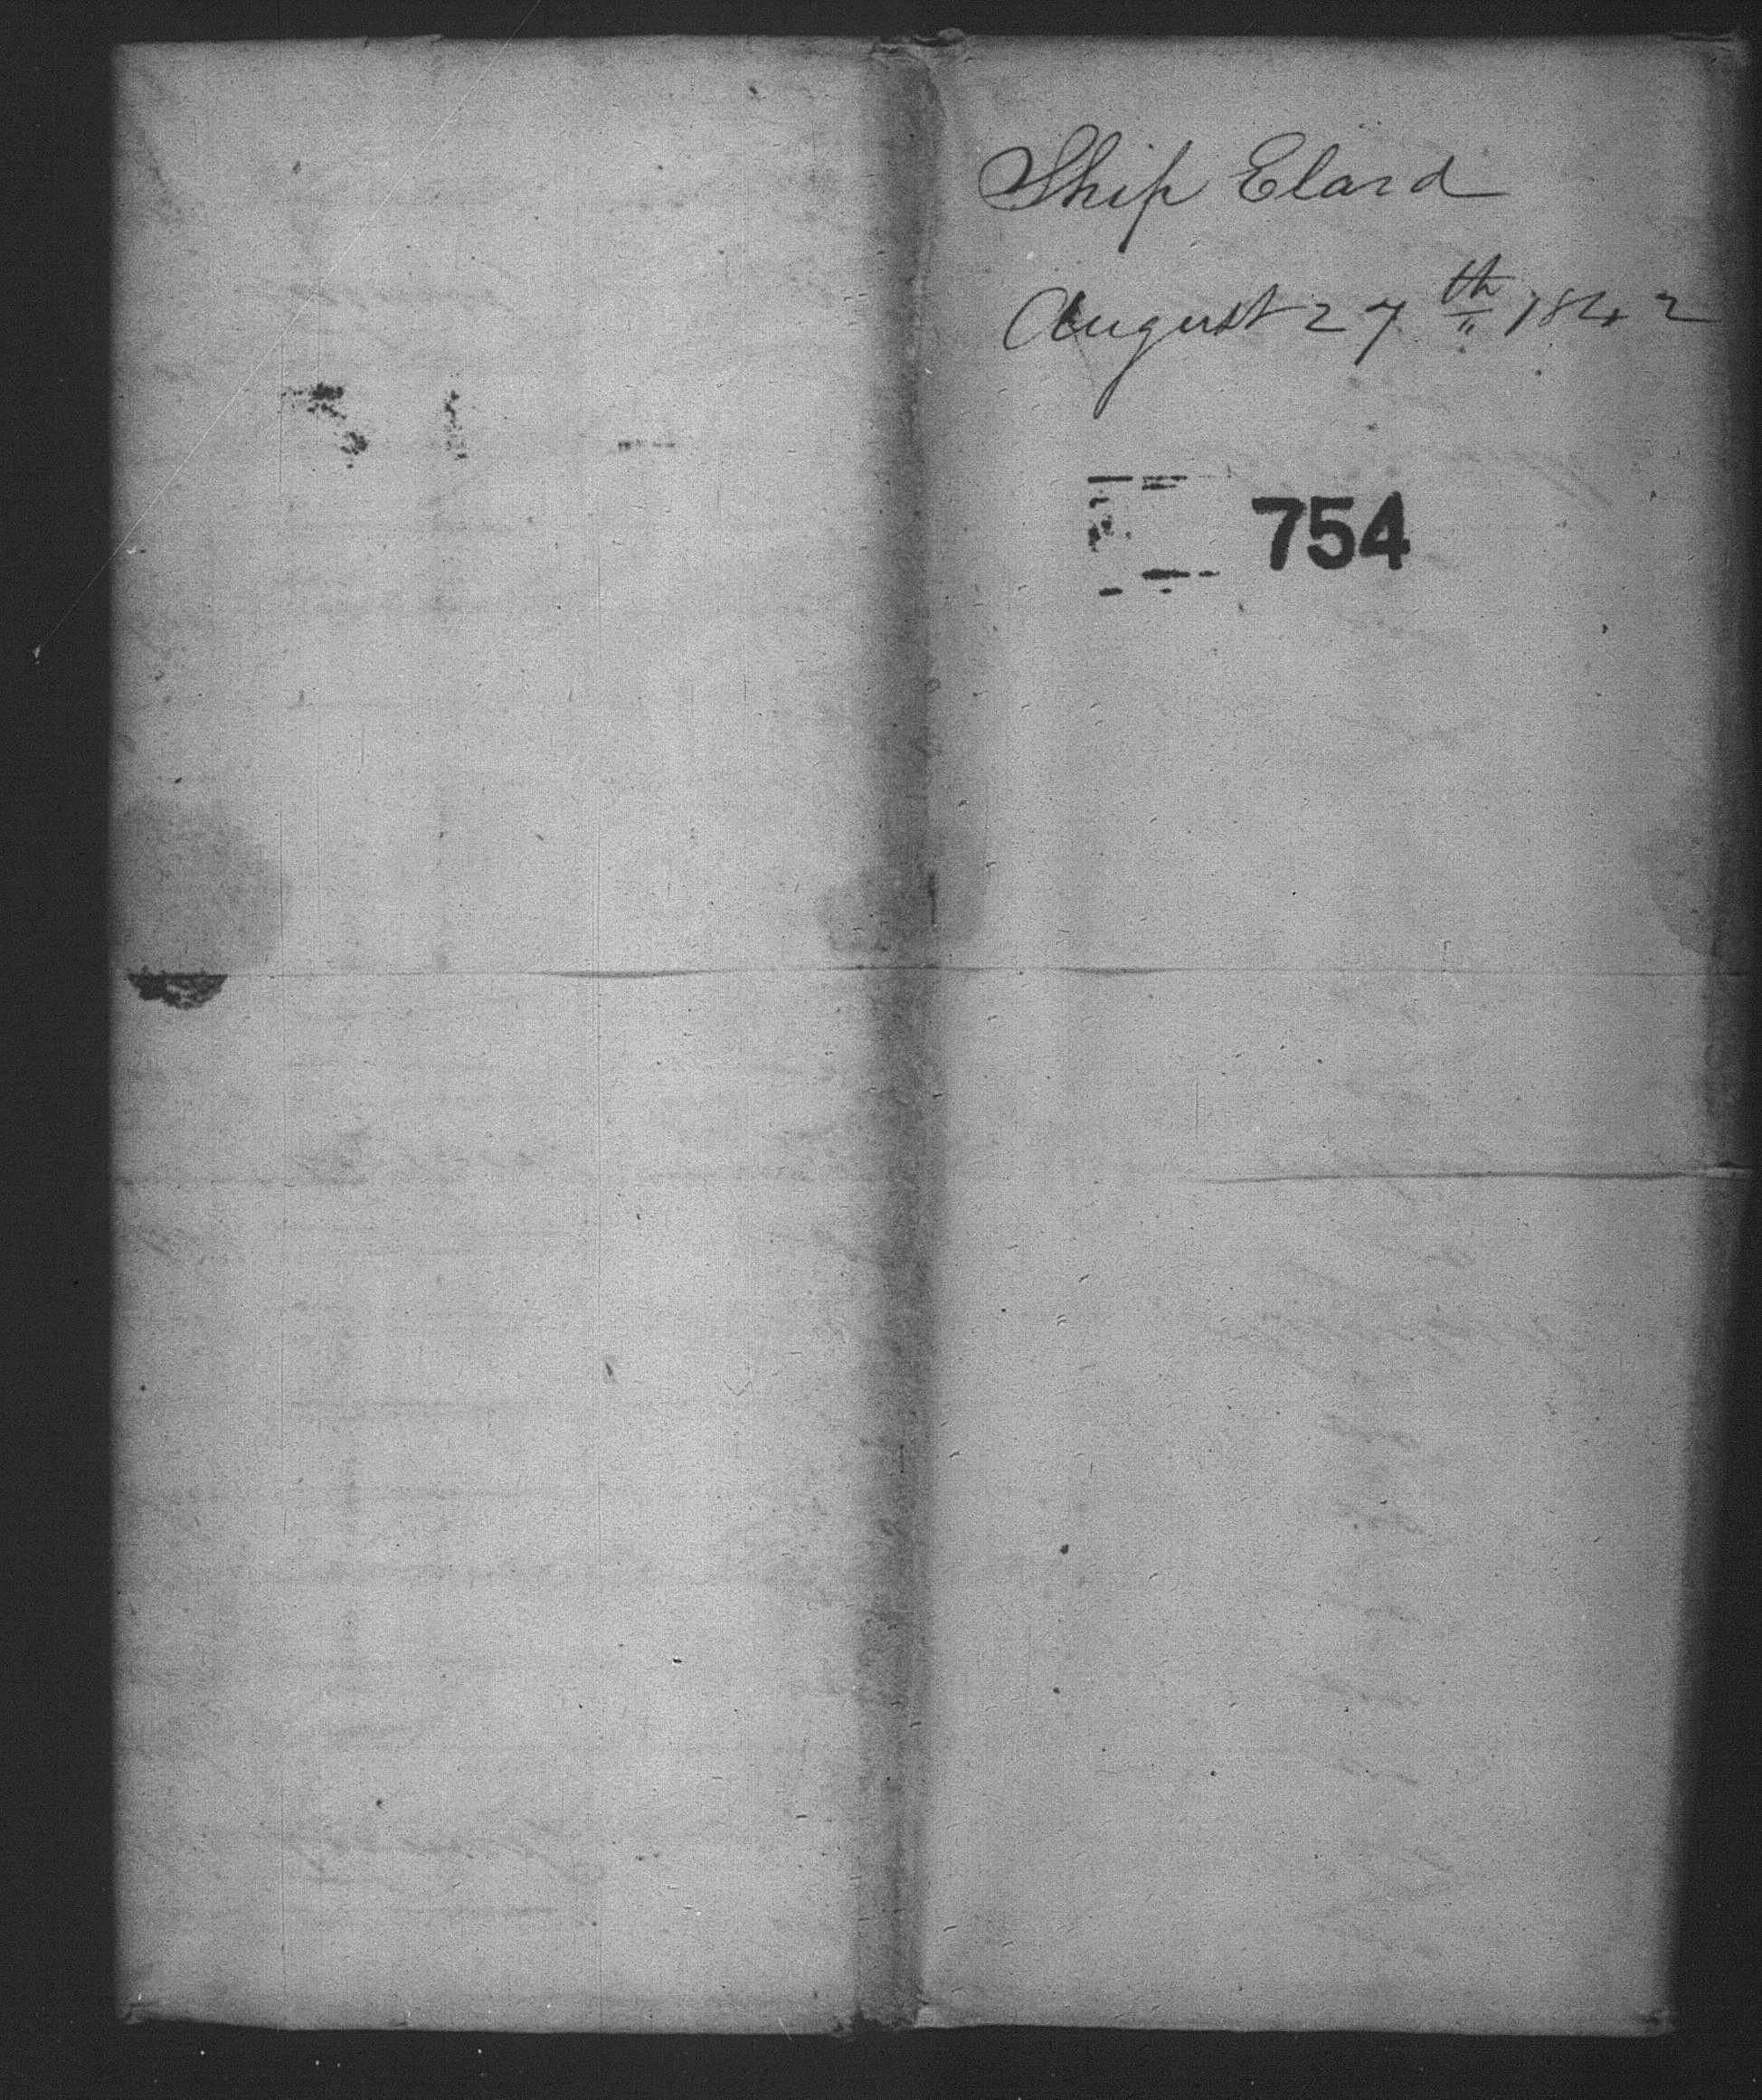 Ship Elard
August 27th 1842
754